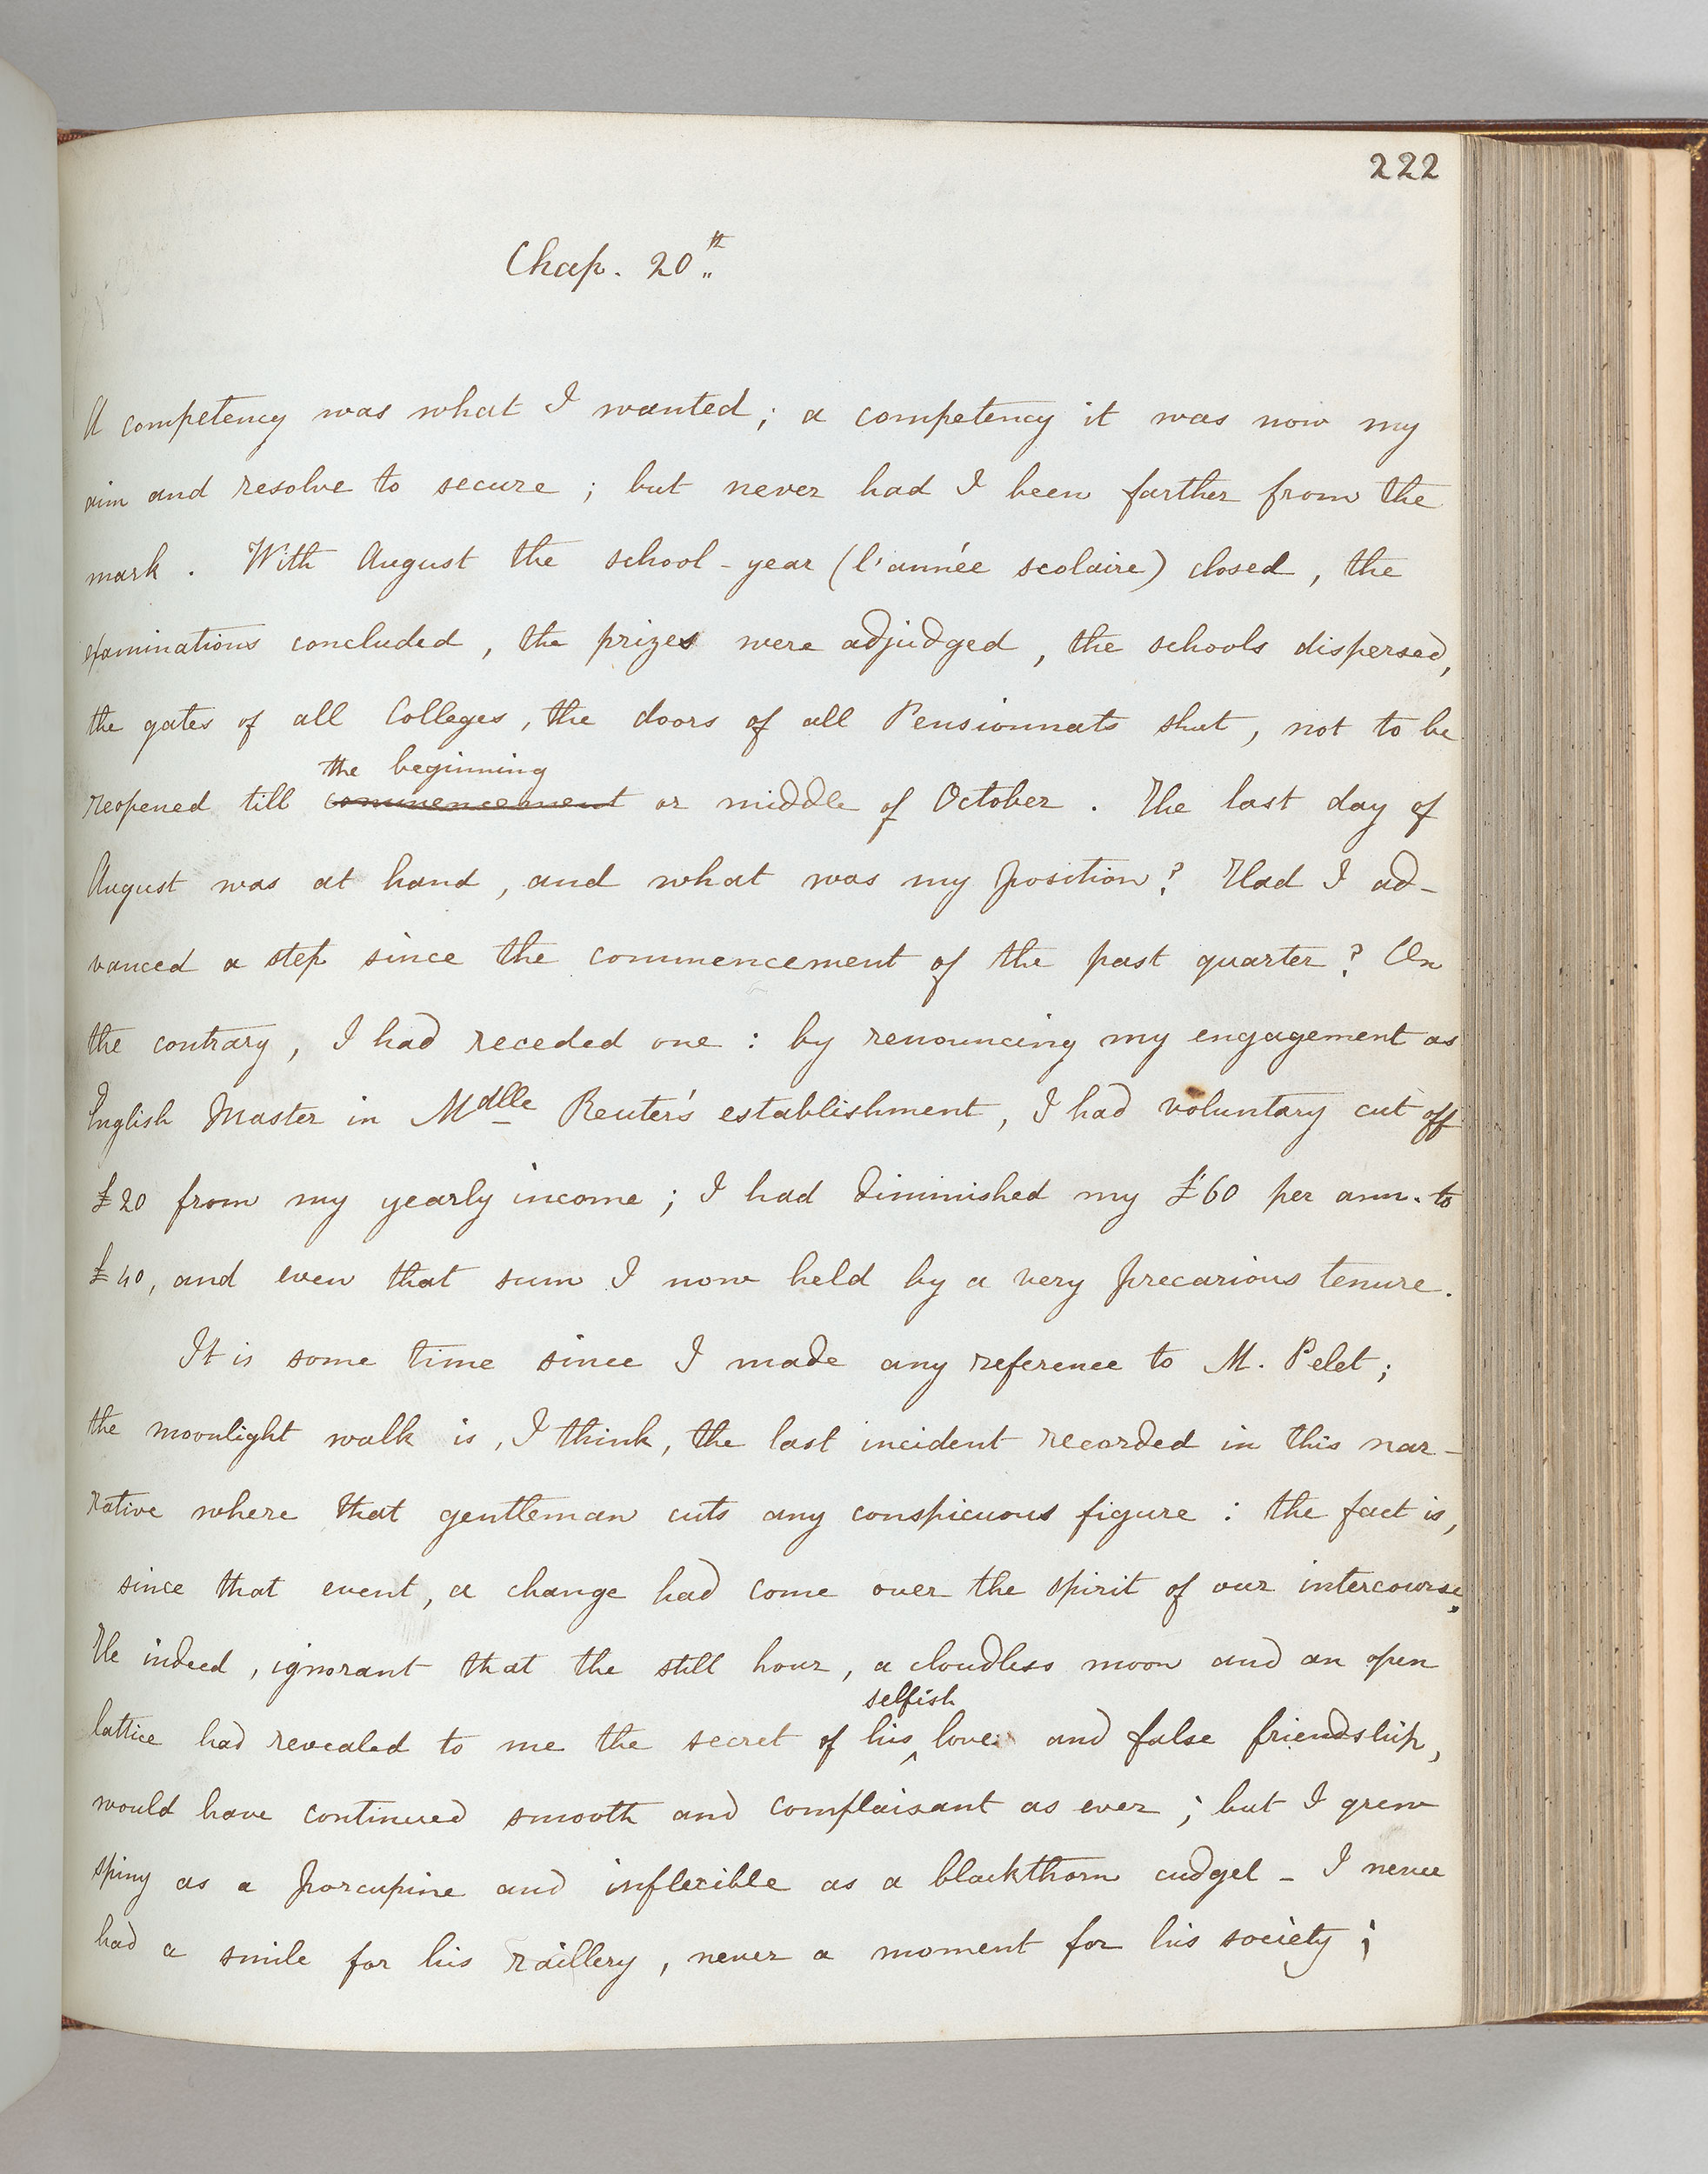 222
Chap. 20th
A competency was what I wanted; a competency it was now my
aim and resolve to secure; but never had I been farther from the
mark. With August the school-year (l'année scolaire) closed, the
examinations concluded, the prizes were adjudged, the schools dispersed,
the gates of all Colleges, the doors of all Pensionnats shut, not to be
the beginning
reopened till commencement or middle of October. The last day of
August was at hand, and what was my position? Had I ad-
vanced a step since the commencement of the past quarter? On
the contrary, I had receded one: by renouncing my engagement as
English Master in Mdlle Reuter's establishment, I had voluntary cut off
£20 from my yearly income; I had diminished my £60 per ann. to
£40, and even that sum I now held by a very precarious tenure.
It is some time since I made any reference to M. Pelet;
the moonlight walk is, I think, the last incident recorded in this nar-
rative where that gentleman cuts any conspicuous figure: the fact is,
since that event, a change had come over the spirit of our intercourse;
He indeed, ignorant that the still hour, a cloudless moon and an open
selfish
lattice had revealed to me the secret of his love and false friendship,
would have continued smooth and complaisant as ever; but I grew
spiny as a porcupine and inflexible as a blackthorn cudgel - I never
had a smile for his raillery, never a moment for his society;